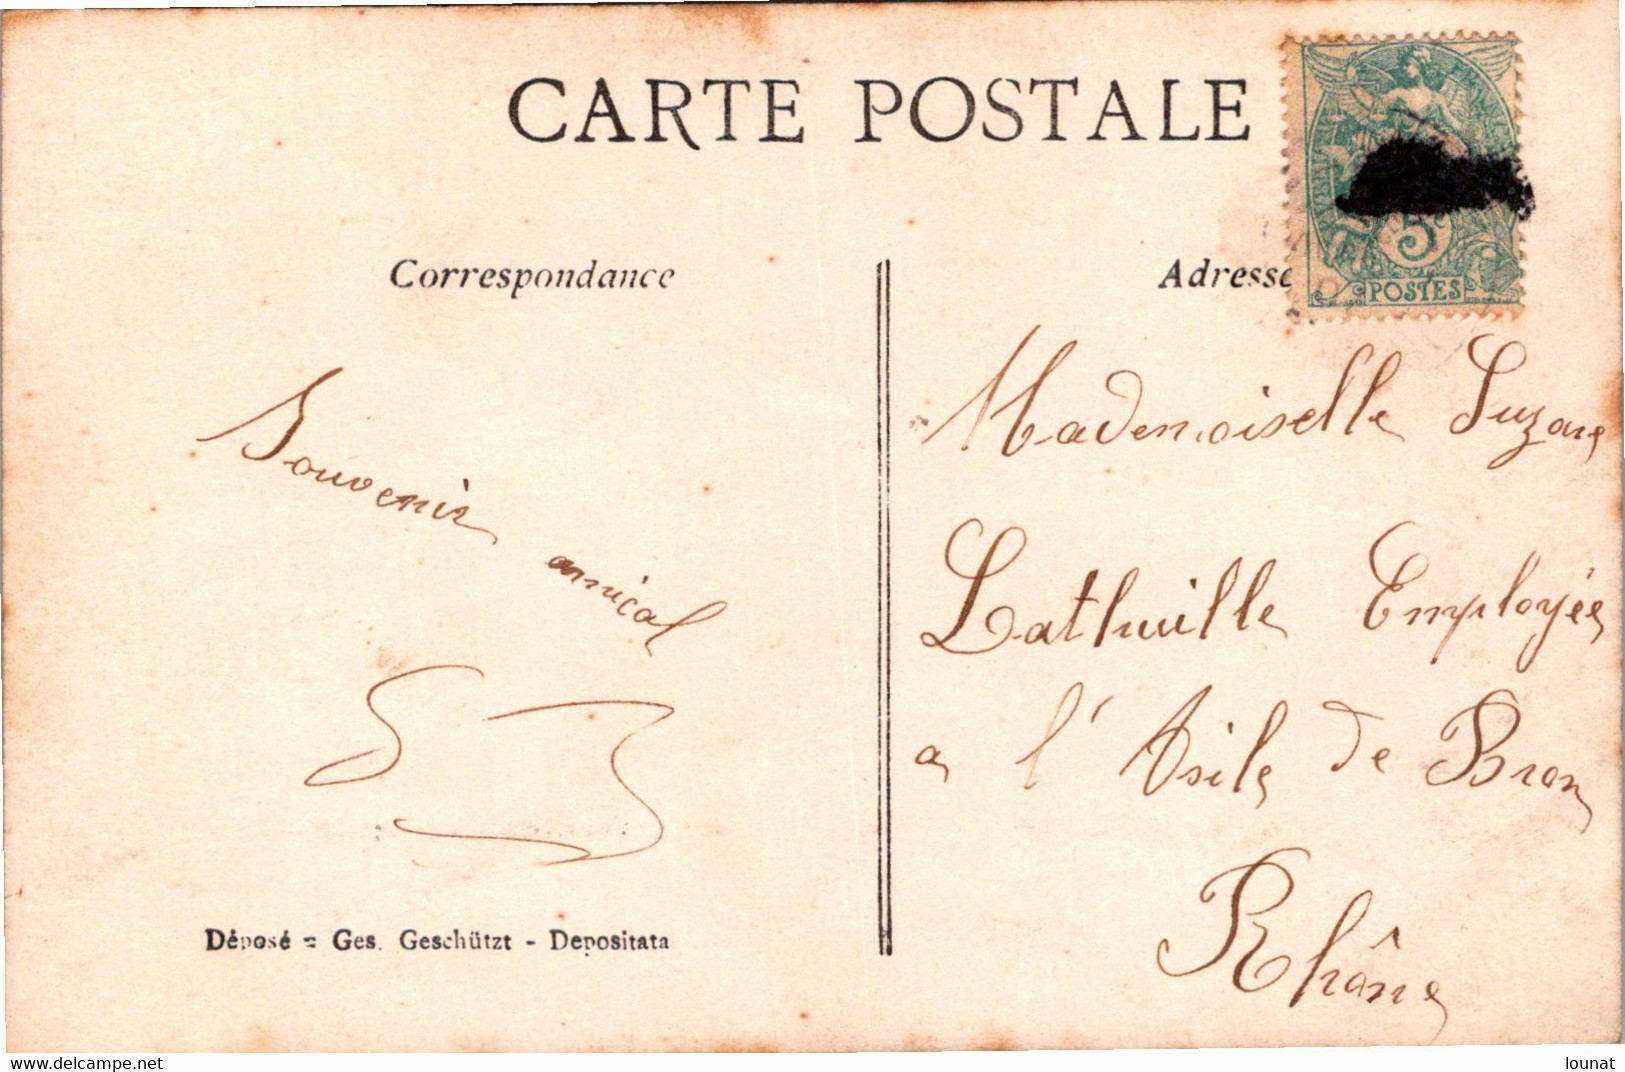 CARTE POSTALE
Correspondance
Adresse
5
POSTES
Souvenir
amical
Mademoiselle Suzane
Lathuille Employée
a l'Asile de Bron
Rhône
Déposé = Ges. Geschützt - Depositata
www.delcampe.net
lounat